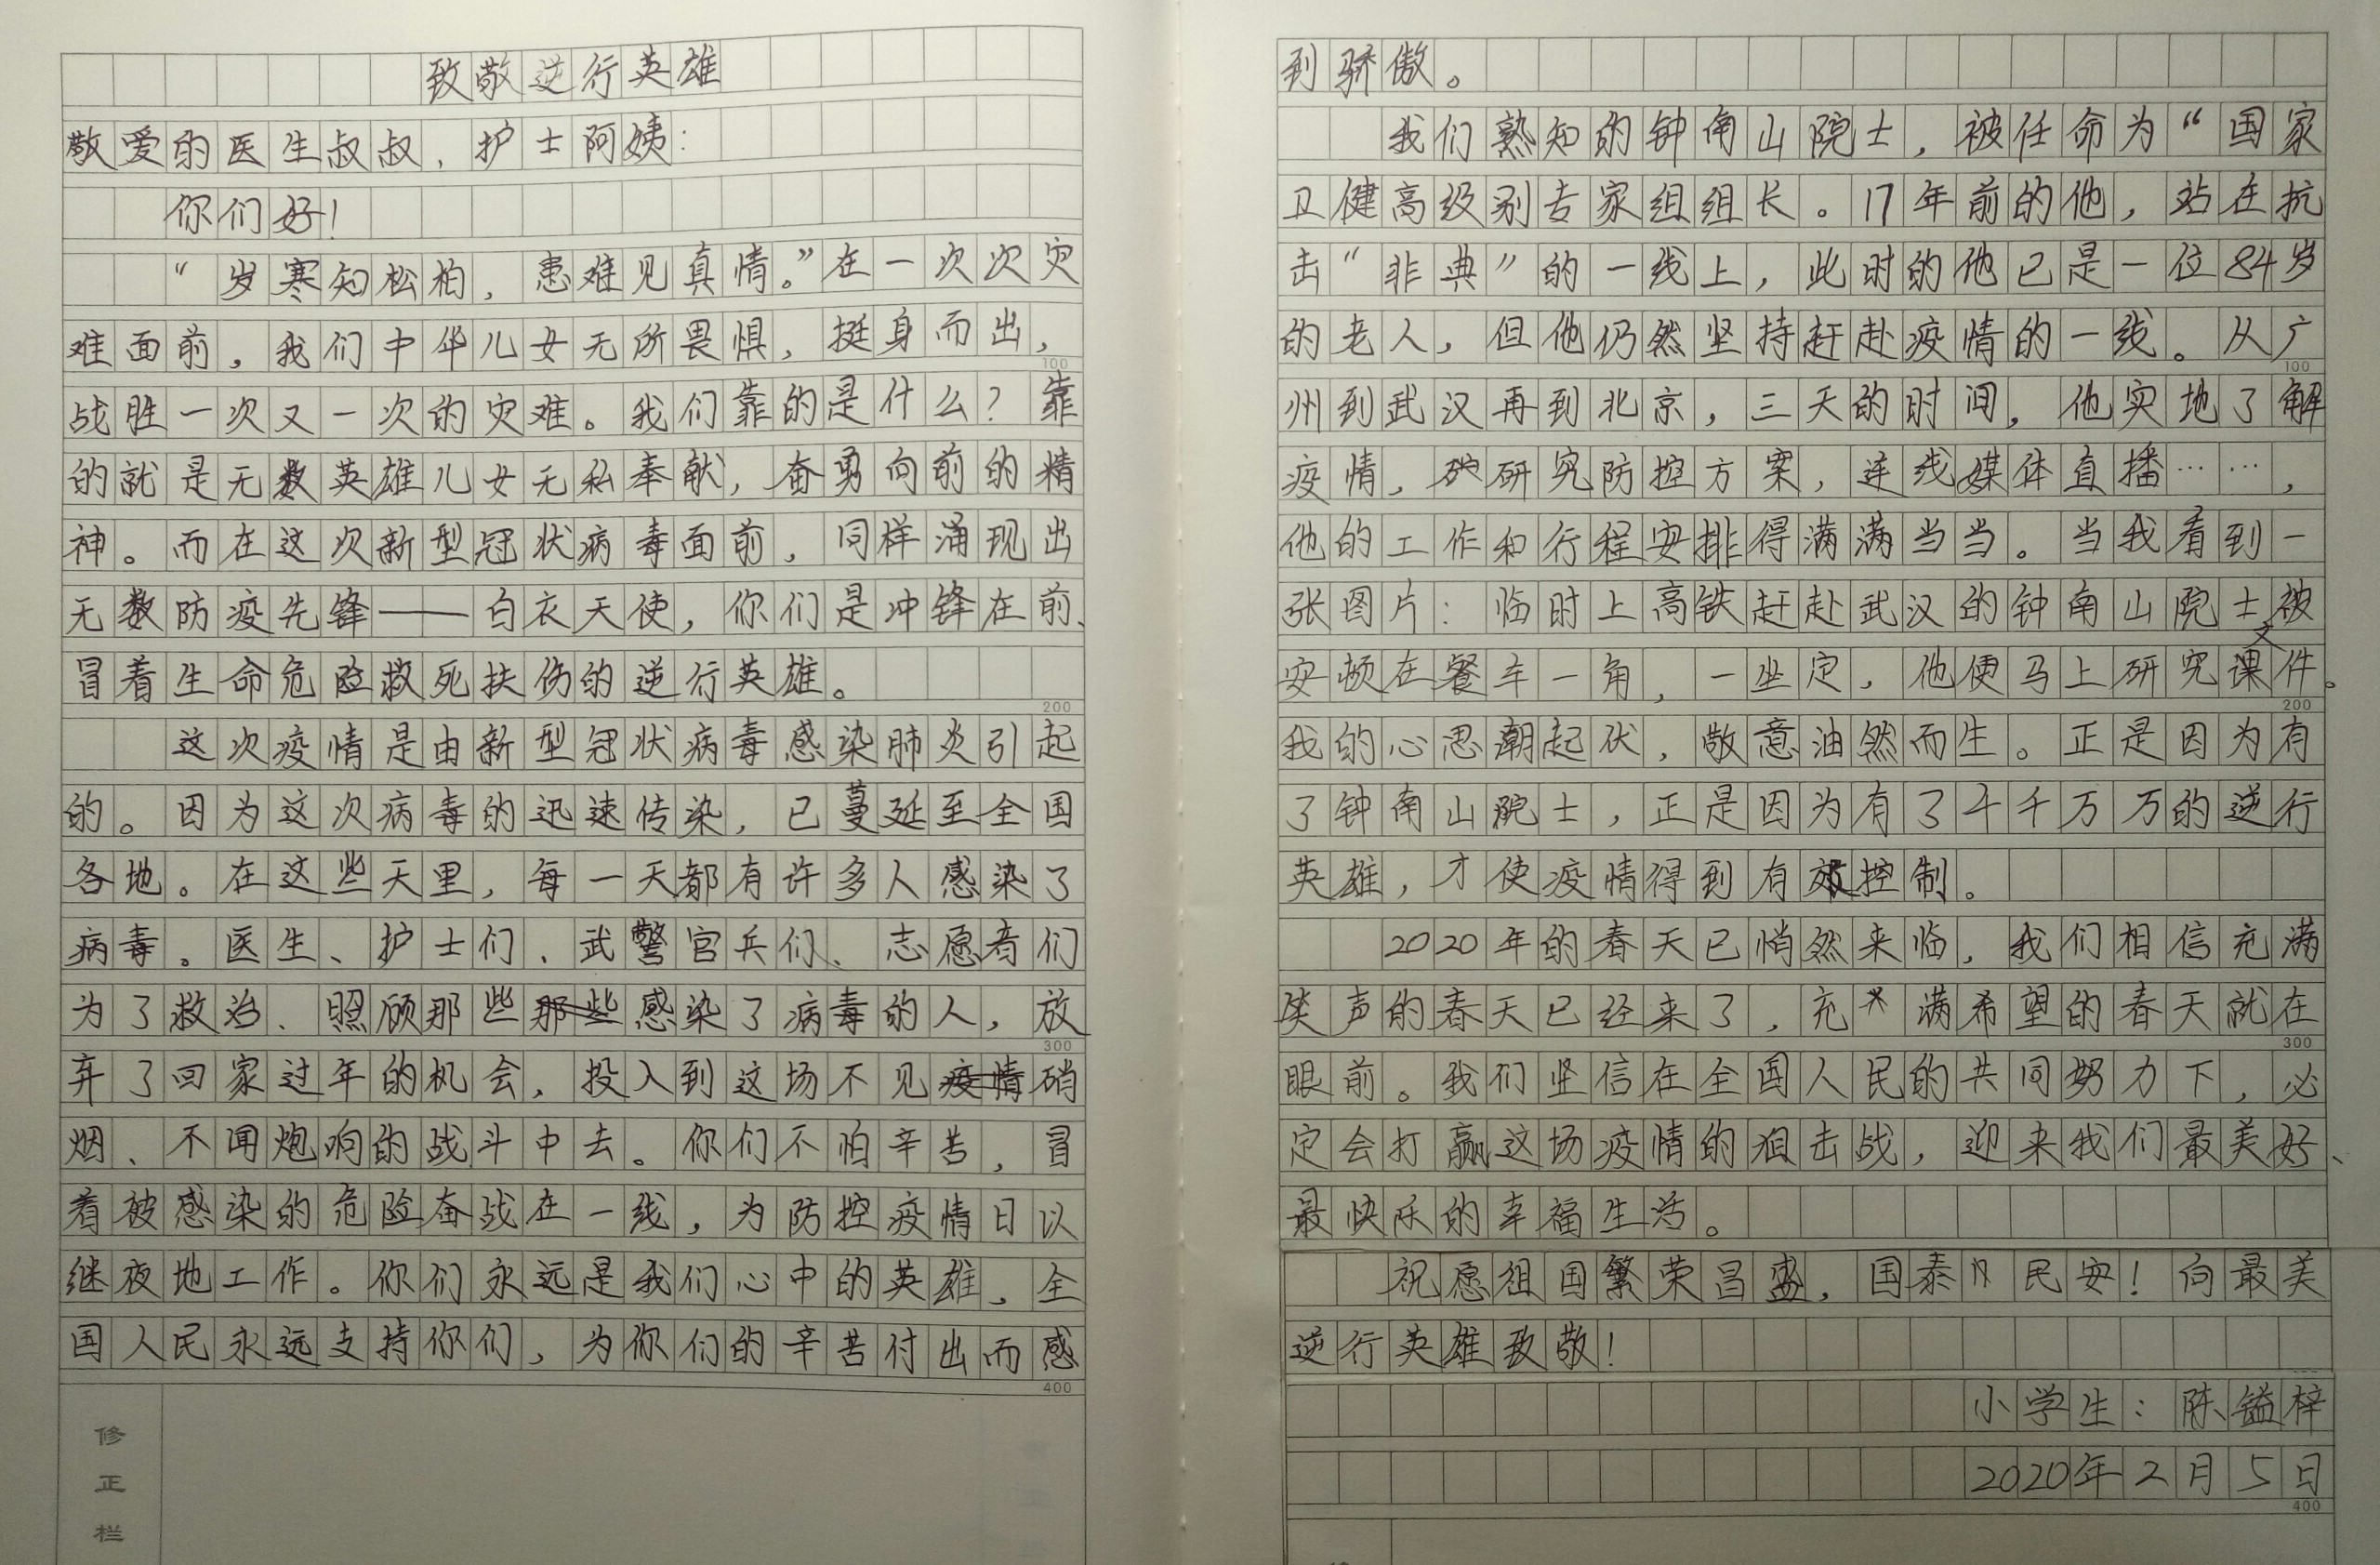 致敬逆行英雄
敬爱的医生叔叔、护士阿姨：
你们好！
“岁寒知松柏，患难见真情。”在一次次灾
难面前，我们中华儿女无所畏惧，挺身而出，
100
战胜一次又一次的灾难。我们靠的是什么？靠
的就是无数英雄儿女无私奉献，奋勇向前的精
神。而在这次新型冠状病毒面前，同样涌现出
无数防疫先锋——白衣天使，你们是冲锋在前、
冒着生命危险救死扶伤的逆行英雄。
200
这次疫情是由新型冠状病毒感染肺炎引起
的。因为这次病毒的迅速传染，已蔓延至全国
各地。在这些天里，每一天都有许多人感染了
病毒。医生、护士们、武警官兵们、志愿者们
为了救治、照顾那些感染了病毒的人，放
300
弃了回家过年的机会，投入到这场不见硝
烟、不闻炮响的战斗中去。你们不怕辛苦，冒
着被感染的危险奋战在一线，为防控疫情日以
继夜地工作。你们永远是我们心中的英雄，全
国人民永远支持你们，为你们的辛苦付出而感
400
修
正
栏
到骄傲。
我们熟知的钟南山院士，被任命为“国家
卫健高级别专家组组长。17年前的他，站在抗
击“非典”的一线上，此时的他已是一位84岁
的老人，但他仍然坚持赶赴疫情的一线。从广
100
州到武汉再到北京，三天的时间，他实地了解
疫情，研究防控方案，连线媒体直播……，
他的工作和行程安排得满满当当。当我看到一
张图片：临时上高铁赶赴武汉的钟南山院士被
安顿在餐车一角，一坐定，他便马上研究文件。
200
我的心思潮起伏，敬意油然而生。正是因为有
了钟南山院士，正是因为有了千千万万的逆行
英雄，才使疫情得到有效控制。
2020年的春天已悄然来临，我们相信充满
笑声的春天已经来了，充满希望的春天就在
300
眼前。我们坚信在全国人民的共同努力下，必
定会打赢这场疫情的狙击战，迎来我们最美好、
最快乐的幸福生活。
祝愿祖国繁荣昌盛，国泰民安！向最美
逆行英雄致敬！
小学生：陈镒梓
2020年2月5日
400